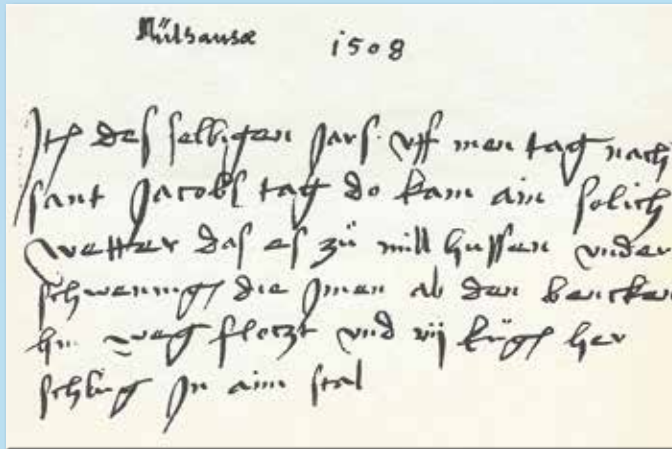 Mülhausæ 1508
Itē des selbigen Jars vff men tag nach
sant Jacobs tag do kam ain solich
wetter das es zü mill hussen vnder
schwenngt die Imen ab den bencken
hin weg fletzt vnd vij küg her
schlüg In aim stal